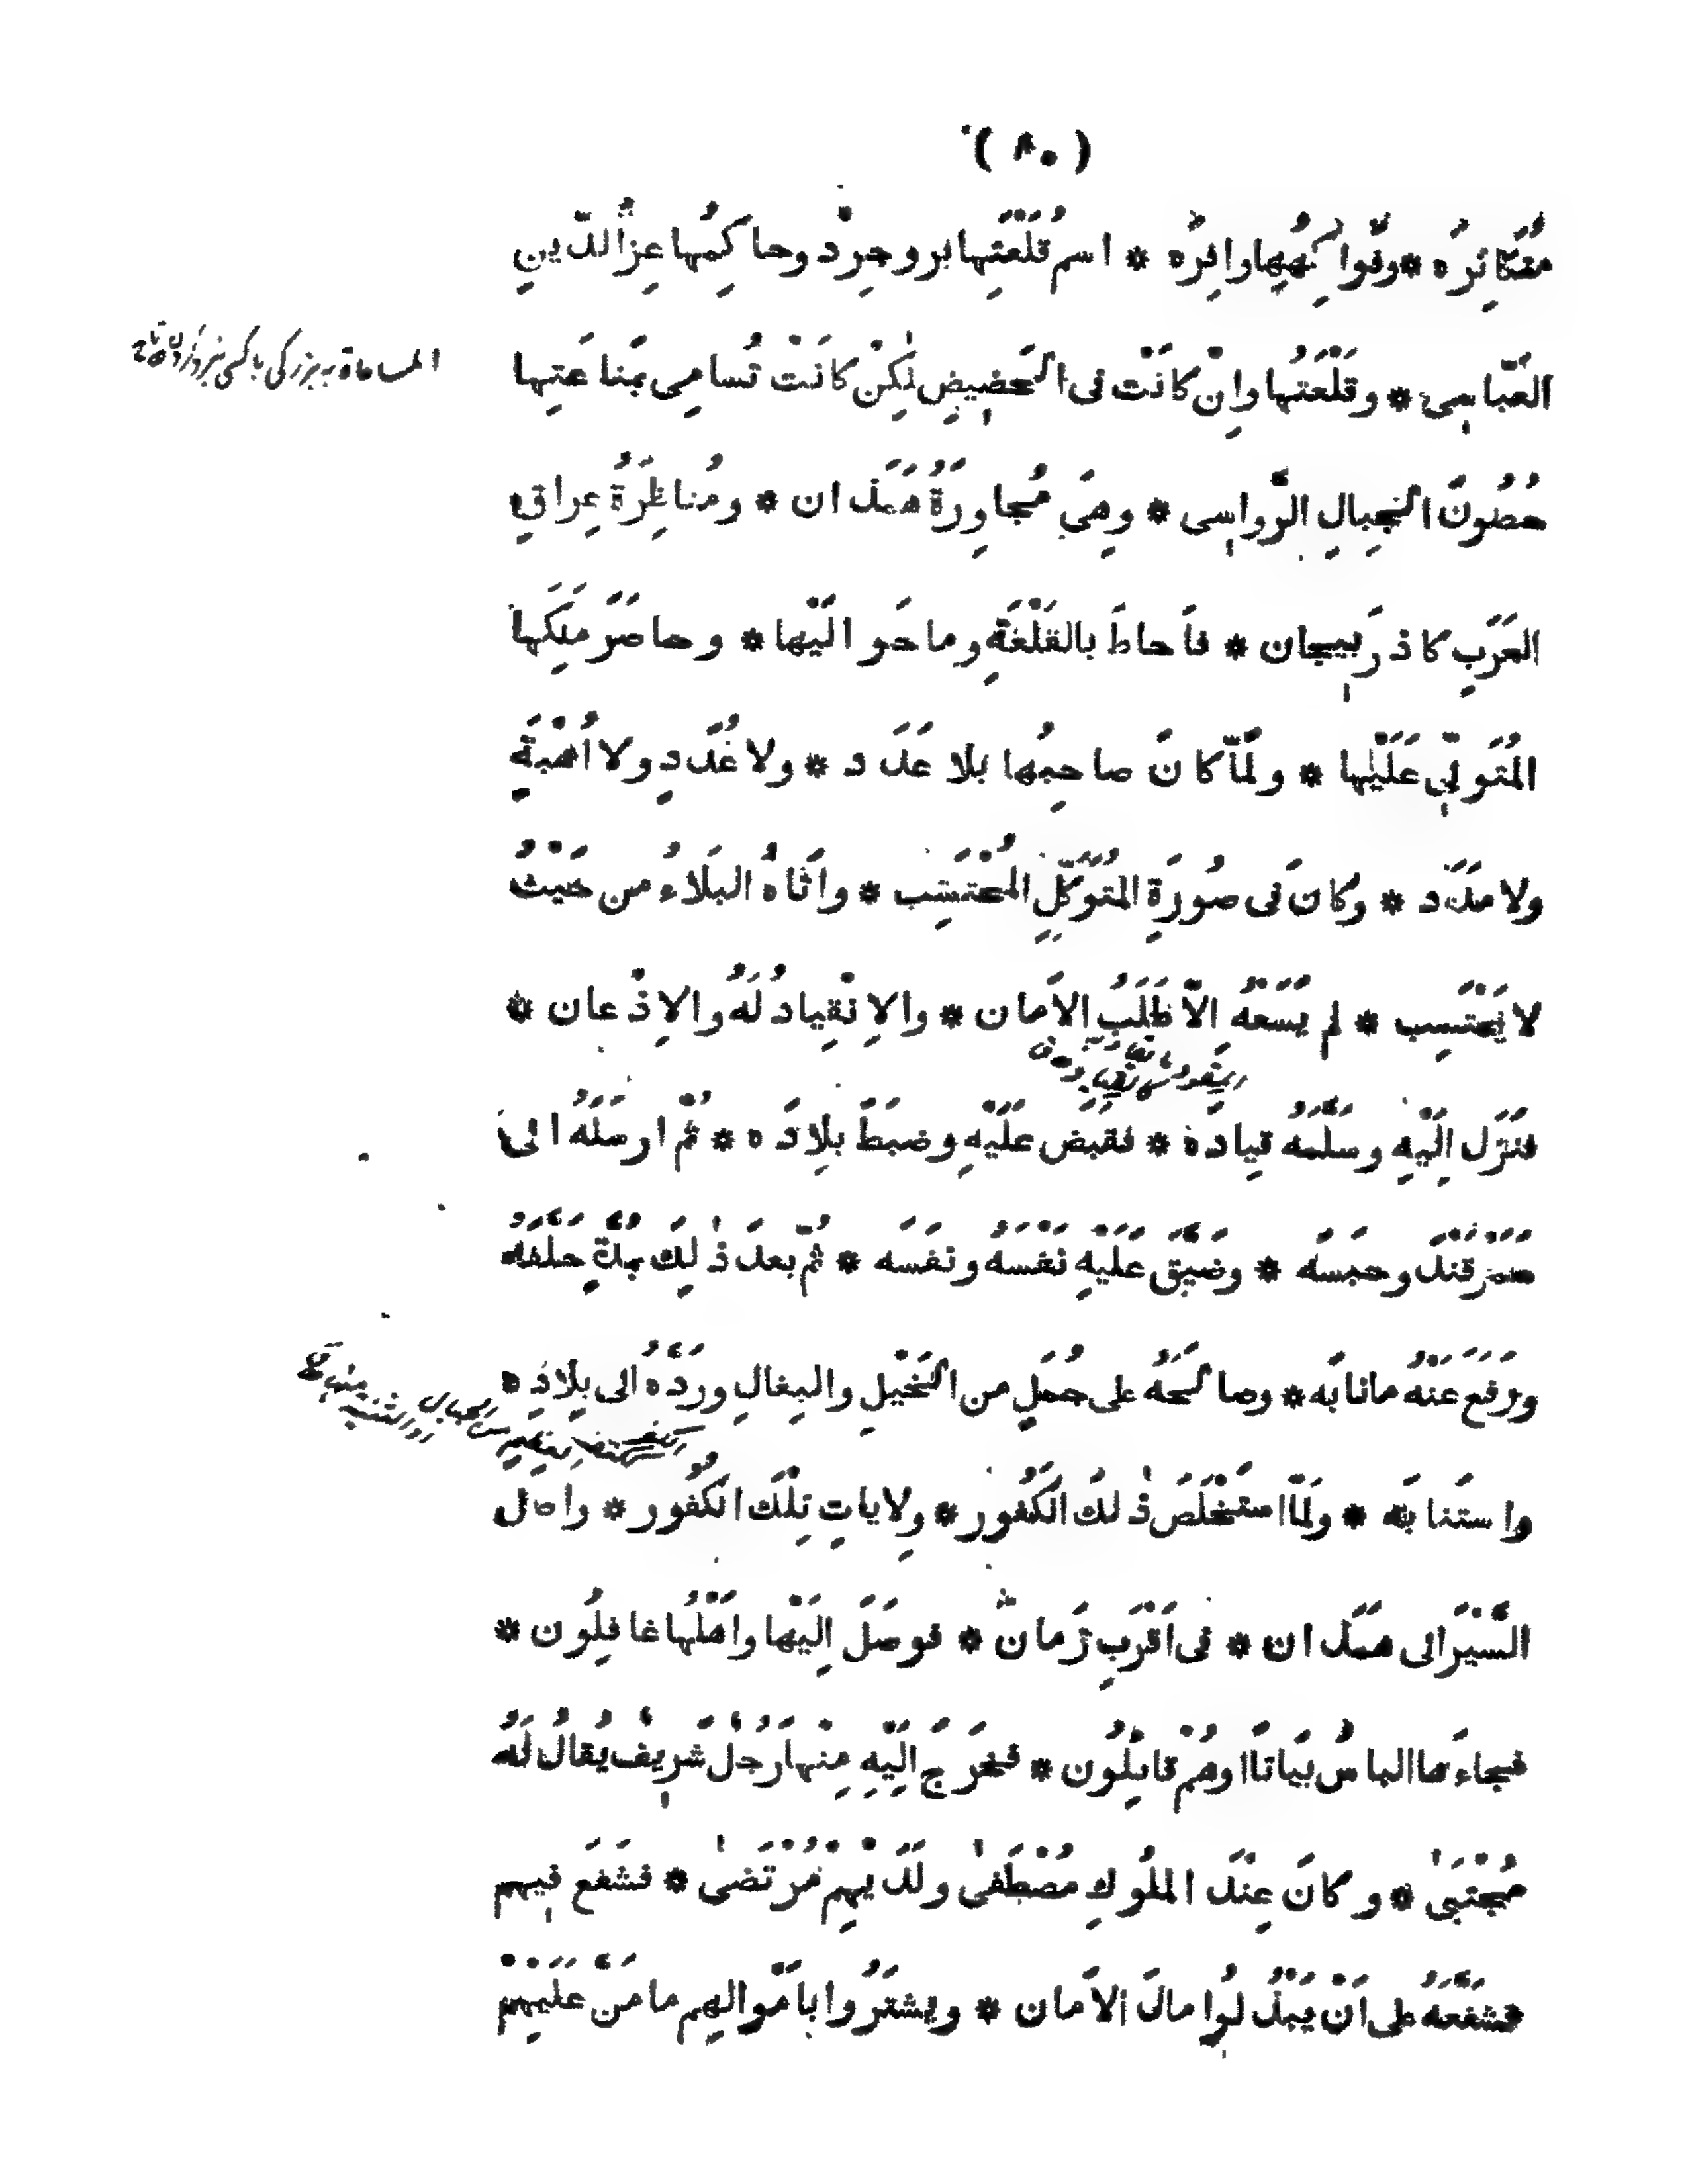 (٨٠)
مُتَكاثِرَه * وفَواكِهُها وافِرَه * اسمُ قَلْعَتِها بروجِرْد وحاكِمُها عِزُّ الدّينِ
العَبّاسِي * وقَلْعَتُها وإنْ كانَتْ فى الحَضِيضِ لٰكِنْ كانَتْ تُسامِى بمَناعَتِها
حُصُونَ الجِبالِ الرَّواسِى * وهِىَ مُجاوِرَةُ هَمَذان * ومُناظِرَةُ عِراقِ
العَرَبِ كاذرَبيجان * فأحاطَ بالقَلْعَةِ وما حَوالَيْها * وحاصَرَ مَلِكَها
المُتَوَلِّى عَلَيْها * ولَمّا كانَ صاحِبُها بلا عَدَد * ولا عُدَدٍ ولا اُهْبَةٍ
ولا مَدَد * وكانَ فى صُورَةِ المُتَوَكِّلِ المُحْتَسِب * واَتاهُ البَلاءُ من حَيْثُ
لا يَحْتَسِب * لم يَسَعْهُ اِلّا طَلَبُ الاَمان * والاِنْقِيادُ لَهُ والاِذْعان *
فنَزَل اِلَيْهِ وسَلَّمَهُ قِيادَه * فقَبَض عَلَيْهِ وضَبَطَ بِلادَه * ثُمّ ارسَلَهُ الى
سَمَرْقَنْدَ وحَبَسَه * وضَيَّقَ عَلَيْهِ نَفْسَهُ ونَفَسَه * ثُمّ بعدَ ذٰلِكَ بمُدّةٍ حَلَّفَهُ
ورَفَع عَنْهُ مانابَه * وصالَحَهُ على جُمَلٍ من الخَيْلِ والبِغالِ ورَدَّهُ الى بِلادِه
واستَنابَه * ولَمّا استَخْلَصَ ذٰلكَ الكَفُور * ولاياتِ تِلْكَ الكُفُور * واصل
السَّيْرَ الى همَذان * فى اَقْرَبِ زَمان * فوصَلَ اِلَيْها واَهْلُها غافِلُون *
فجاءَها الباسُ بَياتًا اوهُم قائِلُون * فخَرَج اِلَيْهِ مِنْها رَجُلٌ شَرِيفٌ يُقالُ لَهُ
مُجْتَبىٰ * وكانَ عِنْدَ المُلُوكِ مُصْطَفىٰ ولَدَيْهِمْ مُرْتَضىٰ * فشَفَع فِيهِم
فشَفَّعَهُ على اَنْ يَبْذُلُوا مالَ الاَمان * ويشتَرُوا باَمْوالِهِم ما مَنَّ عَلَيْهِمْ